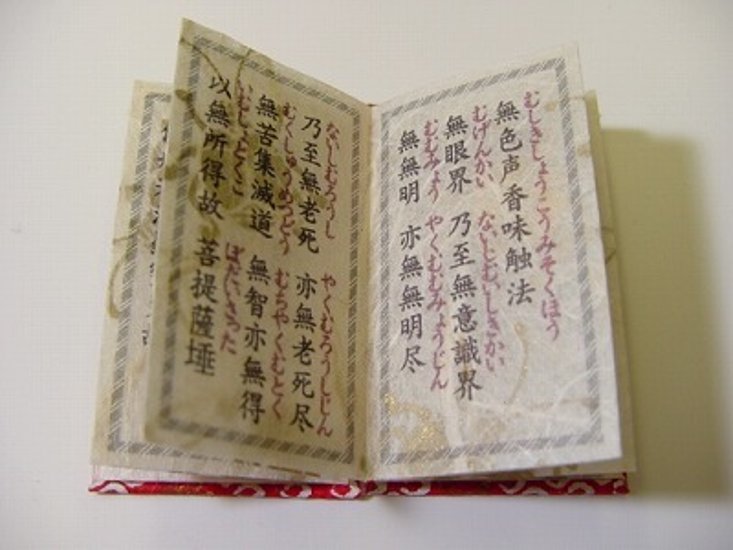 むしきしょうこうみそくほう
無色声香味触法
むげんかい ないしむいしきかい
無眼界 乃至無意識界
むむみょう やくむむみょうじん
無無明 亦無無明尽
ないしむろうし やくむろうしじん
乃至無老死 亦無老死尽
むくしゅうめつどう むちやくむとく
無苦集滅道 無智亦無得
いむしょとくこ ぼだいさった
以無所得故 菩提薩埵